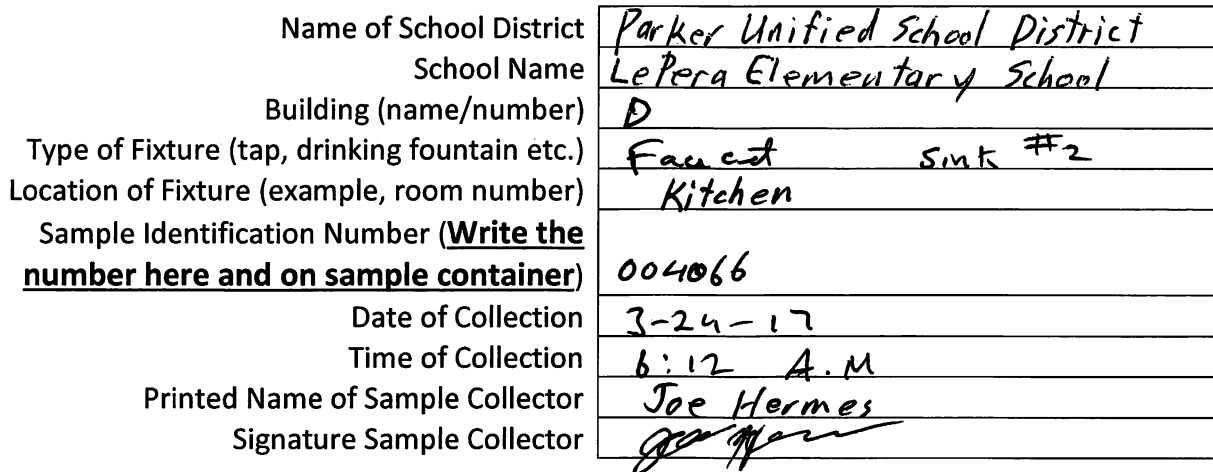 Name of School District Parker Unified School District
School Name LePera Elementary School
Building (name/number) D
Type of Fixture (tap, drinking fountain etc.) Faucet Sink #2
Location of Fixture (example, room number) Kitchen
Sample Identification Number (Write the
number here and on sample container) 004066
Date of Collection 3-24-17
Time of Collection 6:12 A.M
Printed Name of Sample Collector Joe Hermes
Signature Sample Collector